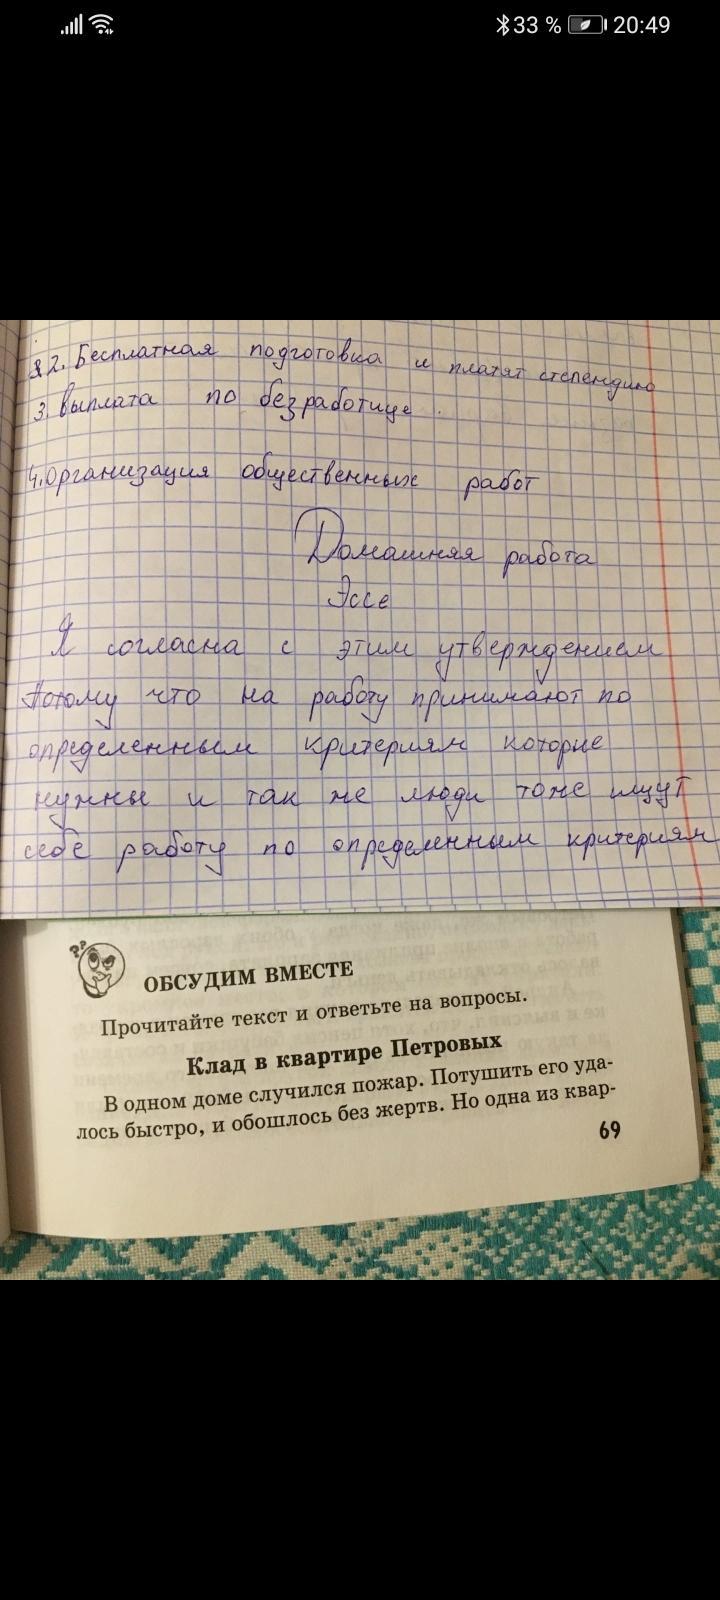 33 % 20:49
2. Бесплатная подготовка и платят степендию
3. выплата по безработице.
4. Организация общественных работ
Домашняя работа
Эссе
Я согласна с этим утверждением
потому что на работу принимают по
определенным критериям которые
нужны и так же люди тоже ищут
себе работу по определенным критериям
??
ОБСУДИМ ВМЕСТЕ
Прочитайте текст и ответьте на вопросы.
Клад в квартире Петровых
В одном доме случился пожар. Потушить его уда-
лось быстро, и обошлось без жертв. Но одна из квар-
69